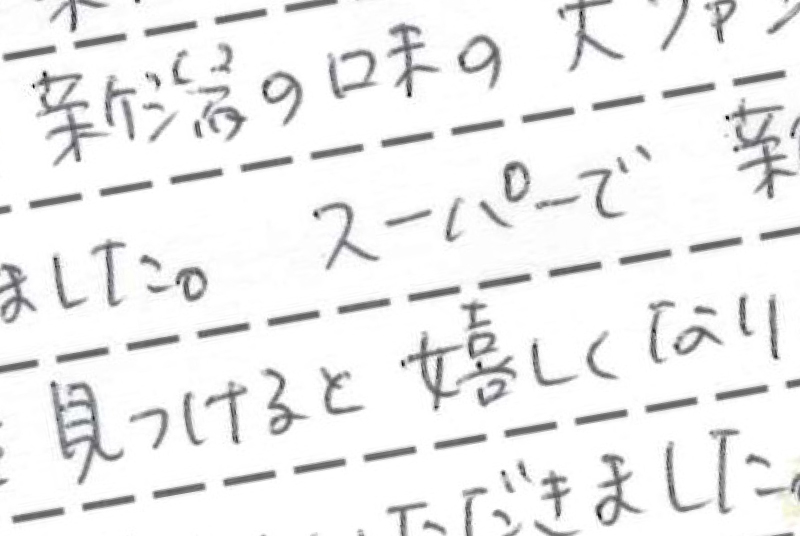 新潟の味の大ファン
ました。 スーパーで 新
見つけると嬉しくなり
ただきました。